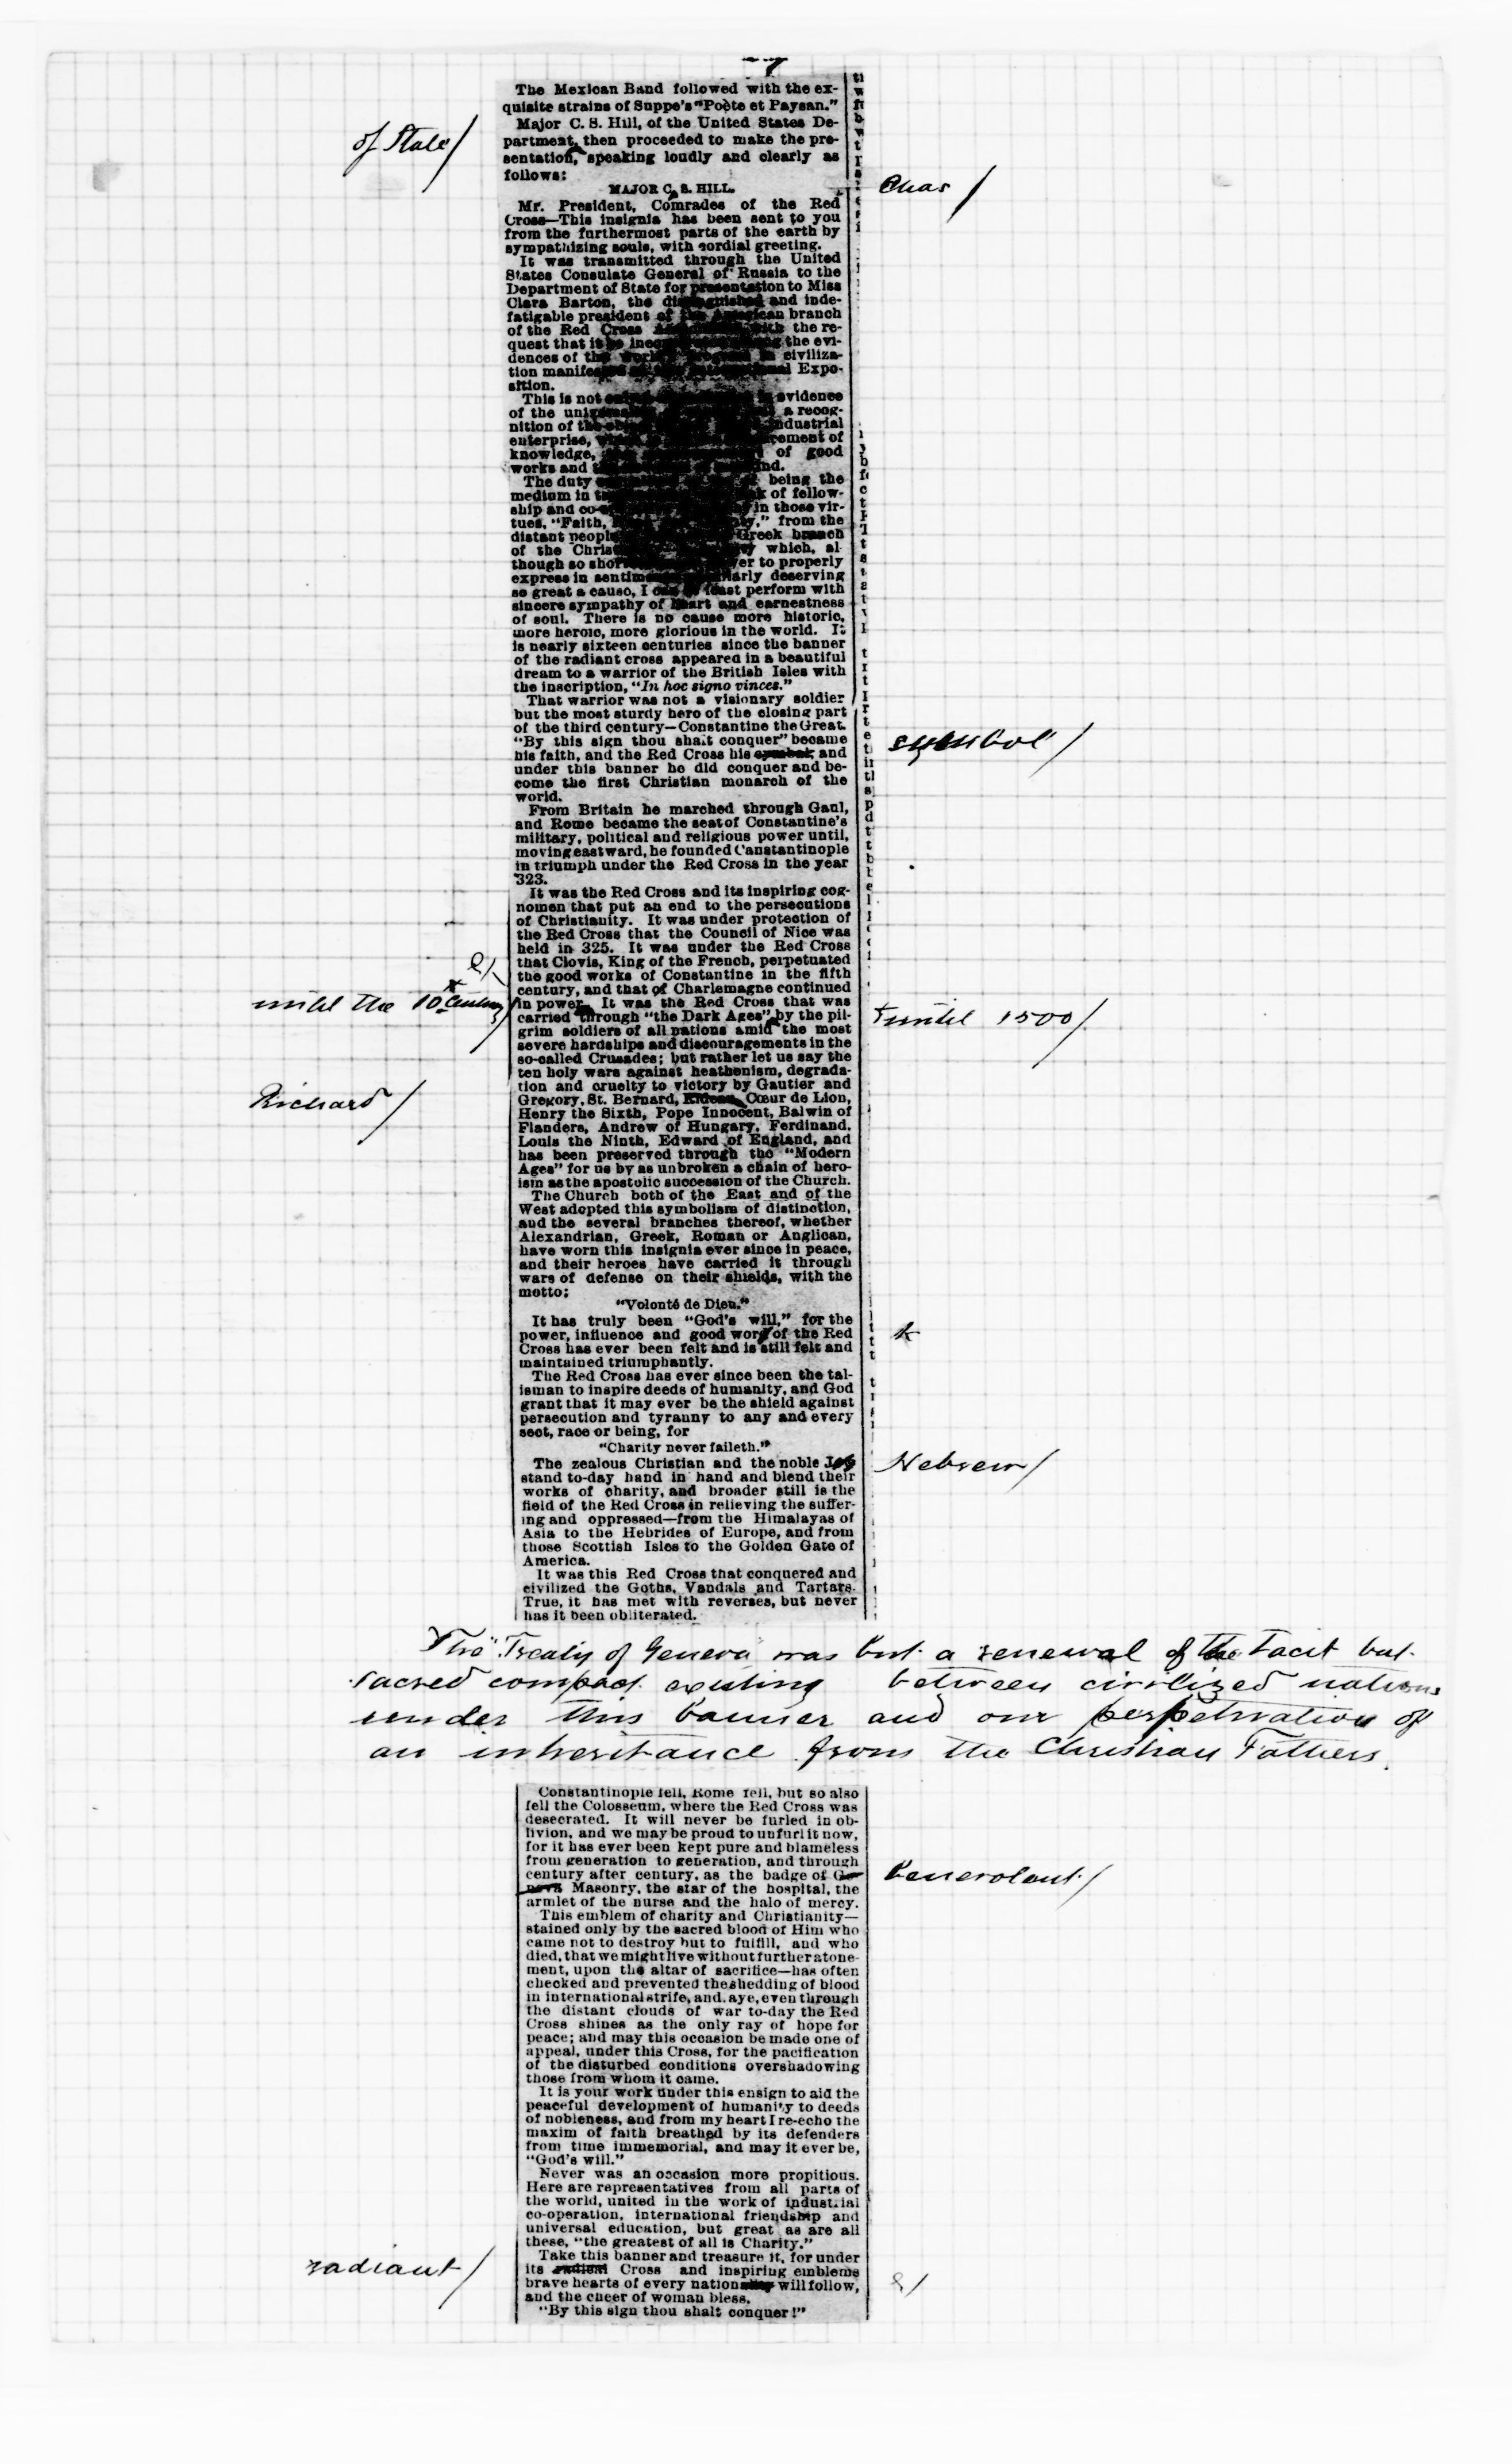 The Mexican Band followed with the ex-
quisite strains of Suppe's "Poète et Paysan."
Major C. S. Hill, of the United States De-
of State/
partment, then proceeded to make the pre-
sentation, speaking loudly and clearly as
follows:
Chas /
MAJOR C. S. HILL.
Mr. President, Comrades of the Red
Cross—This insignia has been sent to you
from the furthermost parts of the earth by
sympathizing souls, with cordial greeting.
It was transmitted through the United
States Consulate General of Russia to the
Department of State for presentation to Miss
Clara Barton, the distinguished and inde-
fatigable president of the American branch
of the Red Cross with the re-
quest that it be the evi-
dences of the civiliza-
tion Expo-
sition.
This is not evidence
of the a recog-
nition of industrial
enterprise, of
knowledge, of good
works and
The duty being the
medium in of fellow-
ship and in those vir-
tues, "Faith, from the
distant Greek branch
of the which, al-
though so to properly
express in deserving
so great a cause, I can at least perform with
sincere sympathy of heart and earnestness
of soul. There is no cause more historic,
more heroic, more glorious in the world. It
is nearly sixteen centuries since the banner
of the radiant cross appeared in a beautiful
dream to a warrior of the British Isles with
the inscription, "In hoc signo vinces."
That warrior was not a visionary soldier
but the most sturdy hero of the closing part
of the third century—Constantine the Great.
"By this sign thou shalt conquer" became
symbol /
his faith, and the Red Cross his and
under this banner he did conquer and be-
come the first Christian monarch of the
world.
From Britain he marched through Gaul,
and Rome became the seat of Constantine's
military, political and religious power until,
moving eastward, he founded Canstantinople
in triumph under the Red Cross in the year
323.
It was the Red Cross and its inspiring cog-
nomen that put an end to the persecutions
of Christianity. It was under protection of
the Red Cross that the Council of Nice was
held in 325. It was under the Red Cross
that Clovis, King of the French, perpetuated
the good works of Constantine in the fifth
century, and that of Charlemagne continued
until the 10 Century /
in power. It was the Red Cross that was
until 1500 /
carried through "the Dark Ages" by the pil-
grim soldiers of all nations amid the most
severe hardships and discouragements in the
so-called Crusades; but rather let us say the
ten holy wars against heathenism, degrada-
tion and cruelty to victory by Gautier and
Richard /
Gregory, St. Bernard, Cœur de Lion,
Henry the Sixth, Pope Innocent, Balwin of
Flanders, Andrew of Hungary, Ferdinand,
Louis the Ninth, Edward of England, and
has been preserved through the "Modern
Ages" for us by as unbroken a chain of hero-
ism as the apostolic succession of the Church.
The Church both of the East and of the
West adopted this symbolism of distinction,
and the several branches thereof, whether
Alexandrian, Greek, Roman or Anglican,
have worn this insignia ever since in peace,
and their heroes have carried it through
wars of defense on their shields, with the
motto:
"Volonté de Dieu."
It has truly been "God's will," for the
k
power, influence and good word of the Red
Cross has ever been felt and is still felt and
maintained triumphantly.
The Red Cross has ever since been the tal-
isman to inspire deeds of humanity, and God
grant that it may ever be the shield against
persecution and tyranny to any and every
sect, race or being, for
"Charity never faileth."
The zealous Christian and the noble
Hebrew /
stand to-day hand in hand and blend their
works of charity, and broader still is the
field of the Red Cross in relieving the suffer-
ing and oppressed—from the Himalayas of
Asia to the Hebrides of Europe, and from
those Scottish Isles to the Golden Gate of
America.
It was this Red Cross that conquered and
civilized the Goths, Vandals and Tartars.
True, it has met with reverses, but never
has it been obliterated.
The "Treaty of Geneva" was but a renewal of the tacit but
sacred compact existing between civilized nations
under this banner and our perpetration of
an inheritance from the Christian Fathers.
Constantinople fell, Rome fell, but so also
fell the Colosseum, where the Red Cross was
desecrated. It will never be furled in ob-
livion, and we may be proud to unfurl it now,
for it has ever been kept pure and blameless
from generation to generation, and through
century after century, as the badge of Ge-
benevolent /
neva Masonry, the star of the hospital, the
armlet of the nurse and the halo of mercy.
This emblem of charity and Christianity—
stained only by the sacred blood of Him who
came not to destroy but to fulfill, and who
died, that we might live without further atone-
ment, upon the altar of sacrifice—has often
checked and prevented the shedding of blood
in international strife, and, aye, even through
the distant clouds of war to-day the Red
Cross shines as the only ray of hope for
peace; and may this occasion be made one of
appeal, under this Cross, for the pacification
of the disturbed conditions overshadowing
those from whom it came.
It is your work under this ensign to aid the
peaceful development of humanity to deeds
of nobleness, and from my heart I re-echo the
maxim of faith breathed by its defenders
from time immemorial, and may it ever be,
"God's will."
Never was an occasion more propitious.
Here are representatives from all parts of
the world, united in the work of industrial
co-operation, international friendship and
universal education, but great as are all
these, "the greatest of all is Charity."
Take this banner and treasure it, for under
radiant /
its radical Cross and inspiring emblems
brave hearts of every nationality will follow,
and the cheer of woman bless.
"By this sign thou shalt conquer!"